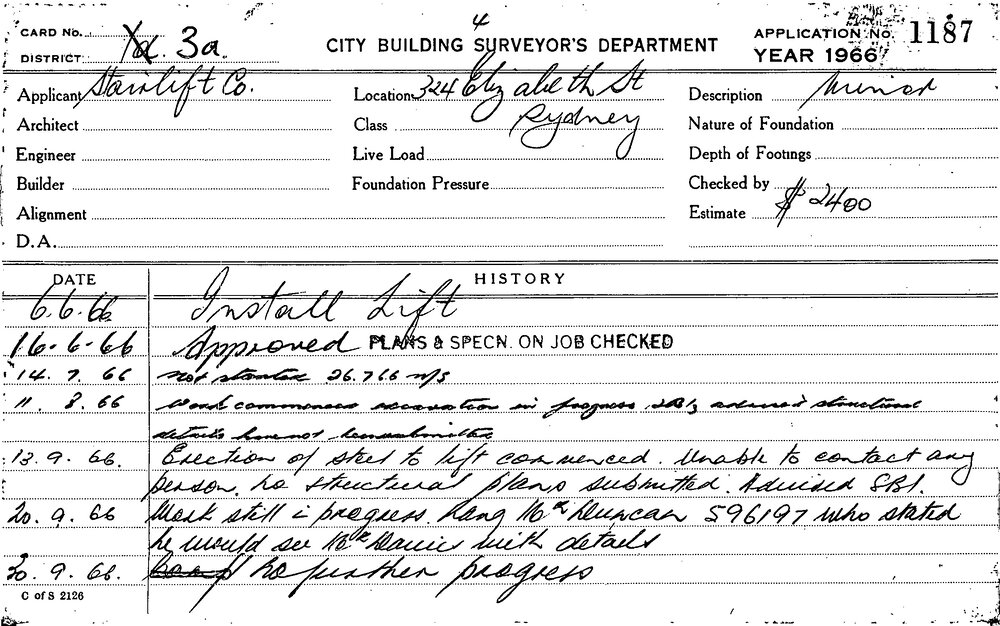 CARD No. 4
DISTRICT 1d. 3a
CITY BUILDING SURVEYOR'S DEPARTMENT
APPLICATION No. 1187
YEAR 1966
Applicant Stairlift Co.
Location 324 Elizabeth St
Sydney
Description Minor
Architect
Class
Nature of Foundation
Engineer
Live Load
Depth of Footings
Builder
Foundation Pressure
Checked by
Alignment
Estimate $ 2400
D.A.
DATE HISTORY
6.6.66 Install Lift
16-6-66 Approved PLANS & SPECN. ON JOB CHECKED
14. 7. 66 not started 26.7.66 n/s
11. 8. 66 Work commenced excavation in progress, SBI, advised structural
details have not been submitted
13. 9. 66. Erection of steel to lift commenced. Unable to contact any
person. No structural plans submitted. Advised SBI.
20. 9. 66 Work still in progress. Rang Mr Duncan 596197 who stated
he would see Mr Davis with details
30. 9. 66. No further progress
C of S 2126